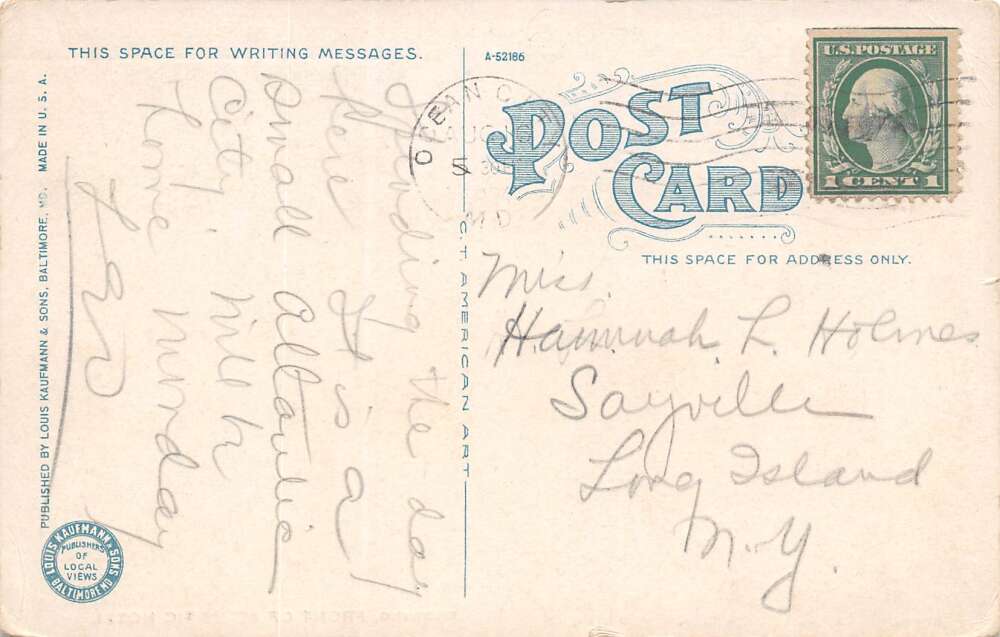 THIS SPACE FOR WRITING MESSAGES.
A-52186
Spending the day
Here It is a
small Atlantic
City. Will h
Home Monday
PUBLISHED BY LOUIS KAUFMANN & SONS, BALTIMORE, MD. MADE IN U.S.A.
LOUIS KAUFMANN & SONS
PUBLISHERS
OF
LOCAL
VIEWS
BALTIMORE MD
C.T. AMERICAN ART
OCEAN C
AUG
MD
POST
CARD
U.S. POSTAGE
1 CENT 1
THIS SPACE FOR ADDRESS ONLY.
Miss.
Hannah L. Holmes
Sayville
Long Island
N.Y.